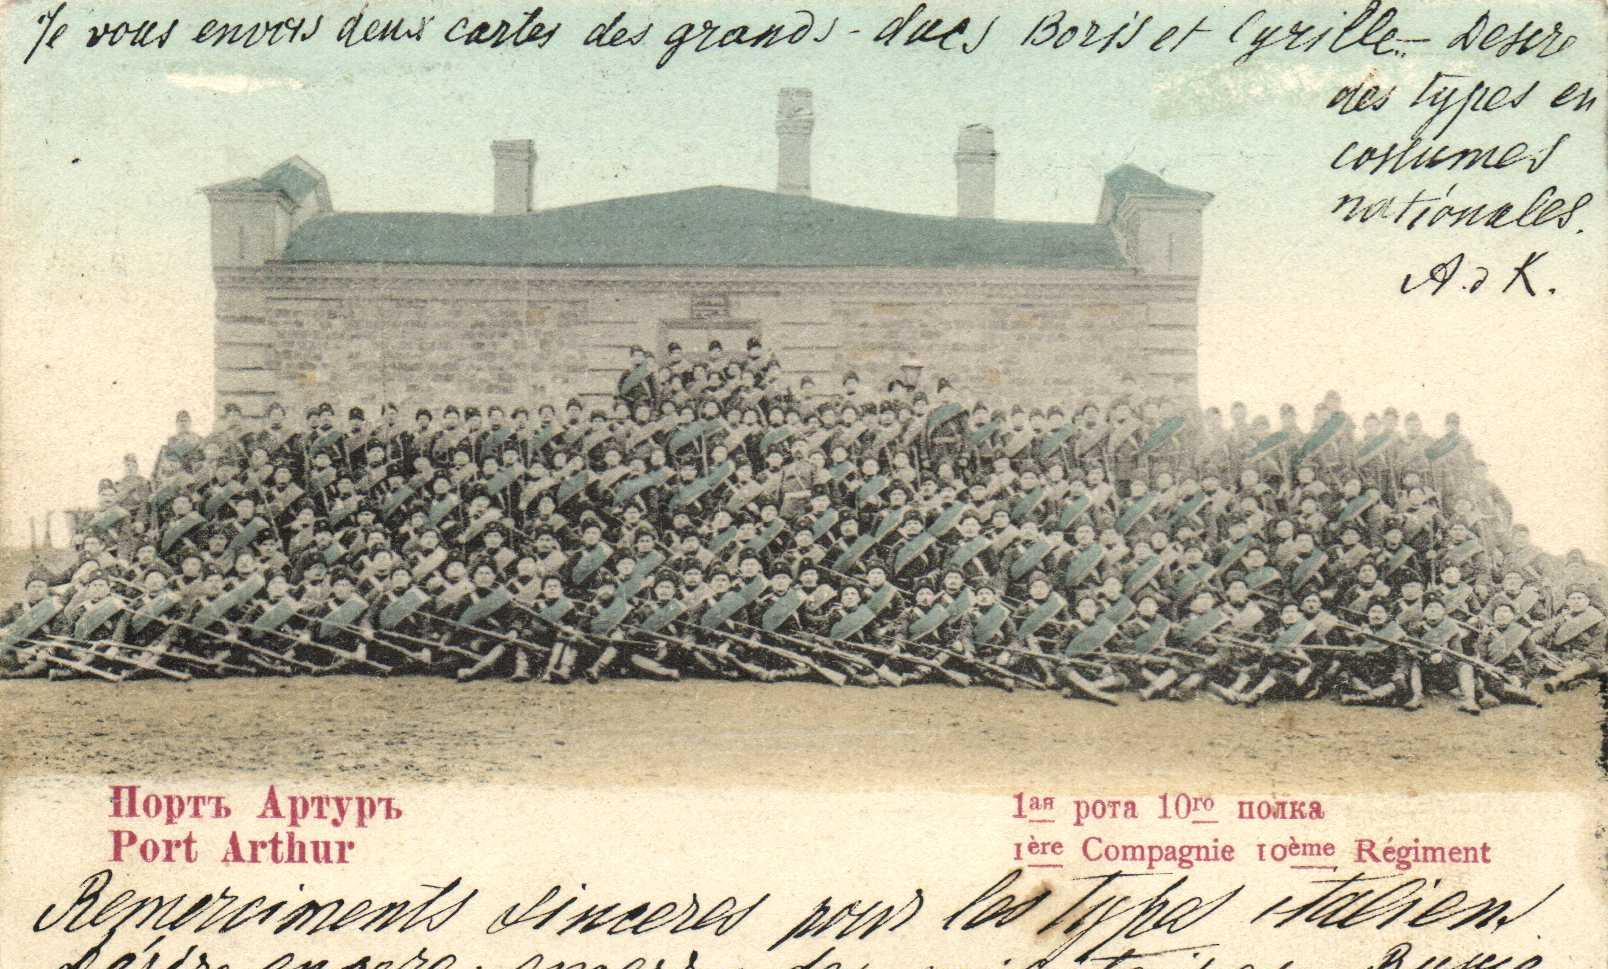 Je vous envois deux cartes des grands-ducs Boris et Cyrille — Desire
des types en
costumes
nationales.
A. d K.
Портъ Артуръ
Port Arthur
1ая рота 10го полка
1ère Compagnie 10ème Régiment
Remerciments sinceres pour les types italiens.